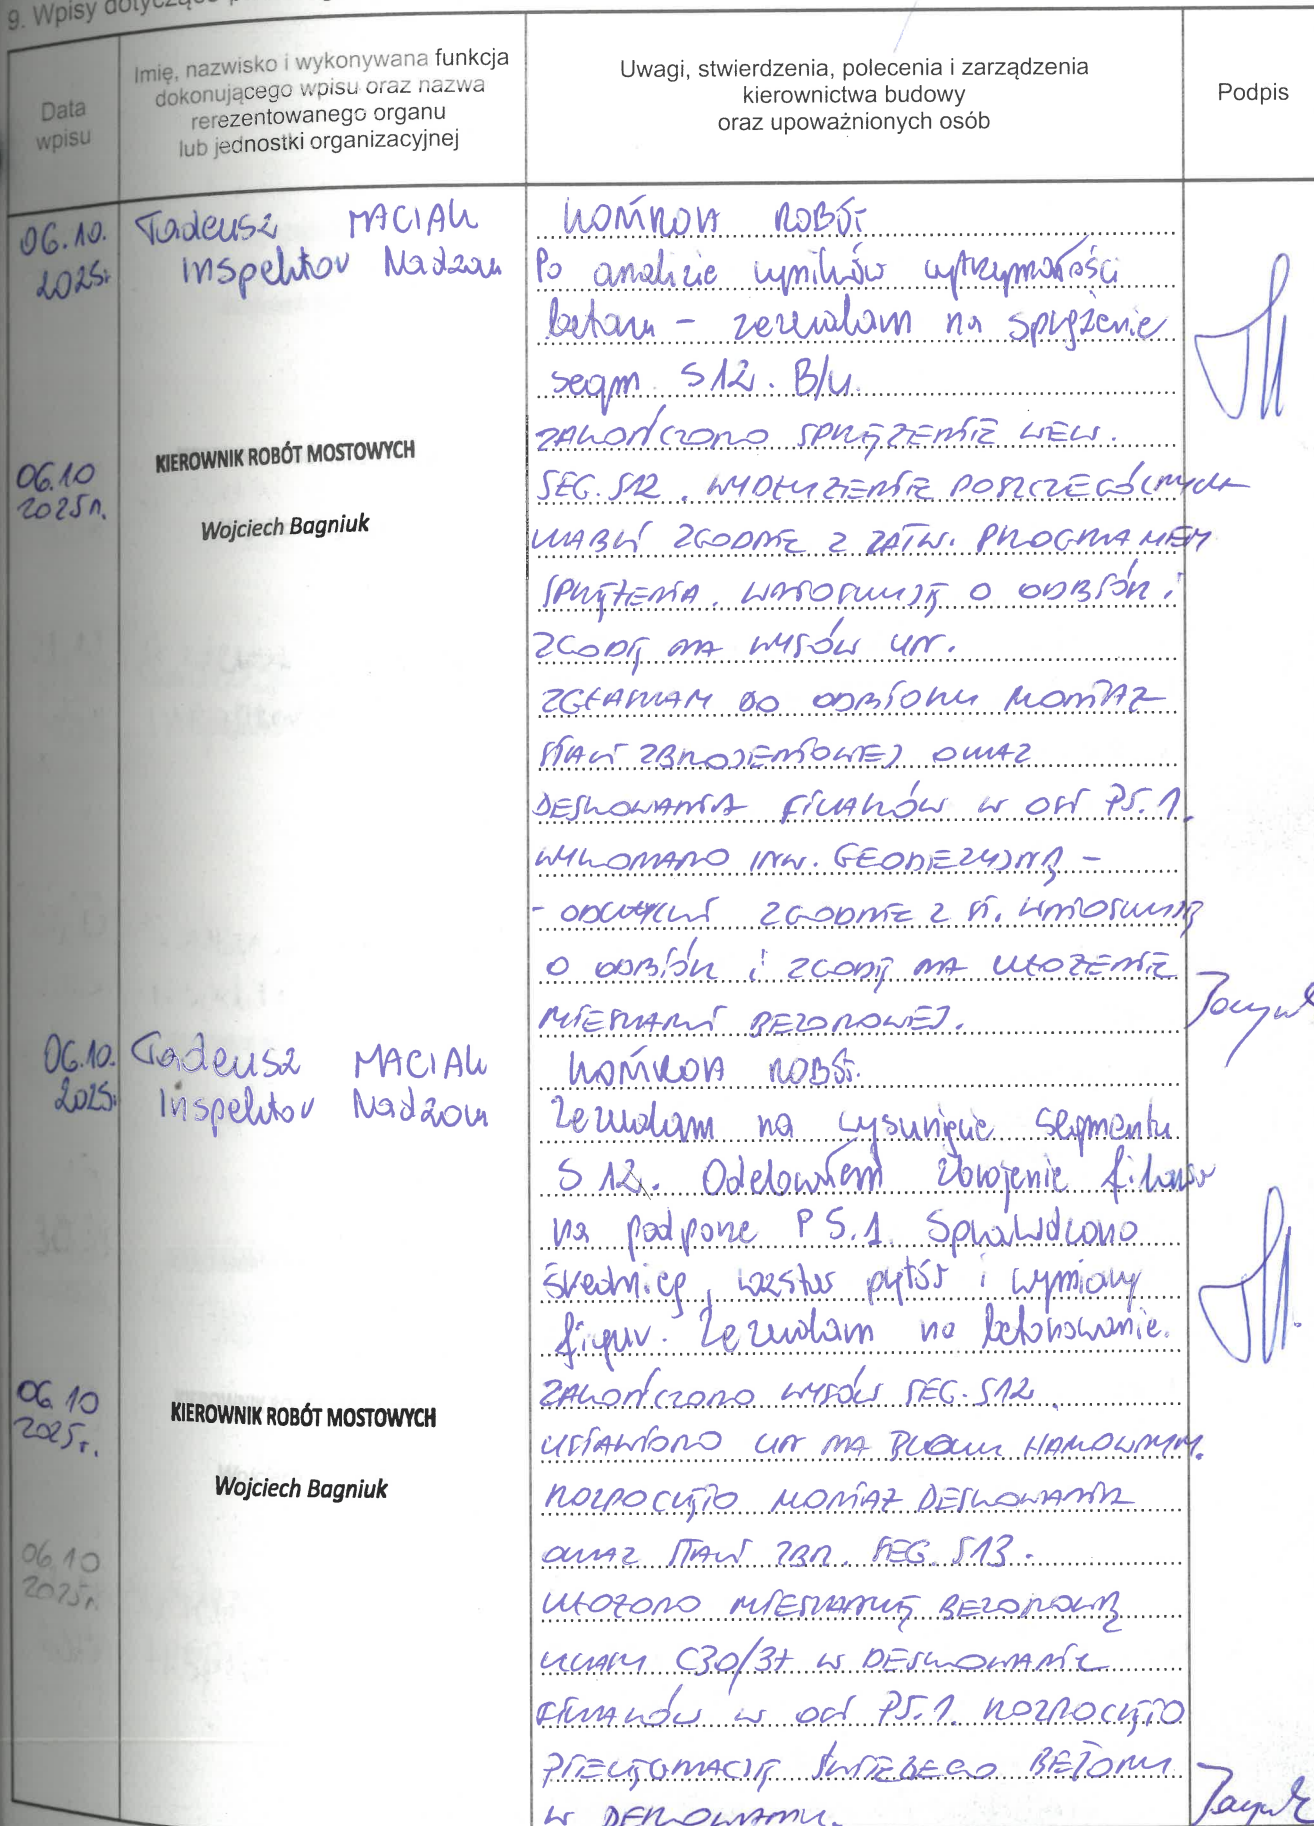 9. Wpisy dotyczące
Data
wpisu
Imię, nazwisko i wykonywana funkcja
dokonującego wpisu oraz nazwa
rerezentowanego organu
lub jednostki organizacyjnej
Uwagi, stwierdzenia, polecenia i zarządzenia
kierownictwa budowy
oraz upoważnionych osób
Podpis
06.10.
2025r
Tadeusz MACIAK
Inspektor Nadzoru
KONTROLA ROBÓT
Po analizie wyników wytrzymałości
betonu - zezwalam na sprężenie
segm. S12. B/U.
06.10
2025r.
KIEROWNIK ROBÓT MOSTOWYCH
Wojciech Bagniuk
ZAKOŃCZONO SPRĘŻENIE WEW.
SEG. S12. WYDŁUŻENIE POSZCZEGÓLNYCH
KABLI ZGODNE Z ZATW. PROGRAMEM
SPRĘŻENIA. WNIOSKUJĘ O ODBIÓR I
ZGODĘ NA WYSÓW UN.
ZGŁASZAM DO ODBIORU MONTAŻ
STALI ZBROJENIOWEJ ORAZ
DESKOWANIA FILARÓW W OSI PS.1.
WYKONANO INW. GEODEZYJNĄ -
- ODCHYŁKI ZGODNE Z ST. WNIOSKUJĘ
O ODBIÓR I ZGODĘ NA UŁOŻENIE
MIESZANKI BETONOWEJ.
06.10.
2025r
Tadeusz MACIAK
Inspektor Nadzoru
KONTROLA ROBÓT.
Zezwalam na wysunięcie segmentu
S 12. Odebrałem zbrojenie filarów
na podporze PS.1. Sprawdzono
średnicę, rozstaw prętów i wymiary
figur. Zezwalam na betonowanie.
06.10
2025r.
KIEROWNIK ROBÓT MOSTOWYCH
Wojciech Bagniuk
ZAKOŃCZONO WYSÓW SEG. S12.
USTAWIONO UN NA BLOKU HAMOWNYM.
ROZPOCZĘTO MONTAŻ DESKOWANIA
ORAZ STALI ZBR. SEG. S13.
06.10
2025r.
UŁOŻONO MIESZANKĘ BETONOWĄ
KLASY C30/37 W DESKOWANIE
FILARÓW W OSI PS.1. ROZPOCZĘTO
PIELĘGNACJĘ ŚWIEŻEGO BETONU
W DESKOWANIU.